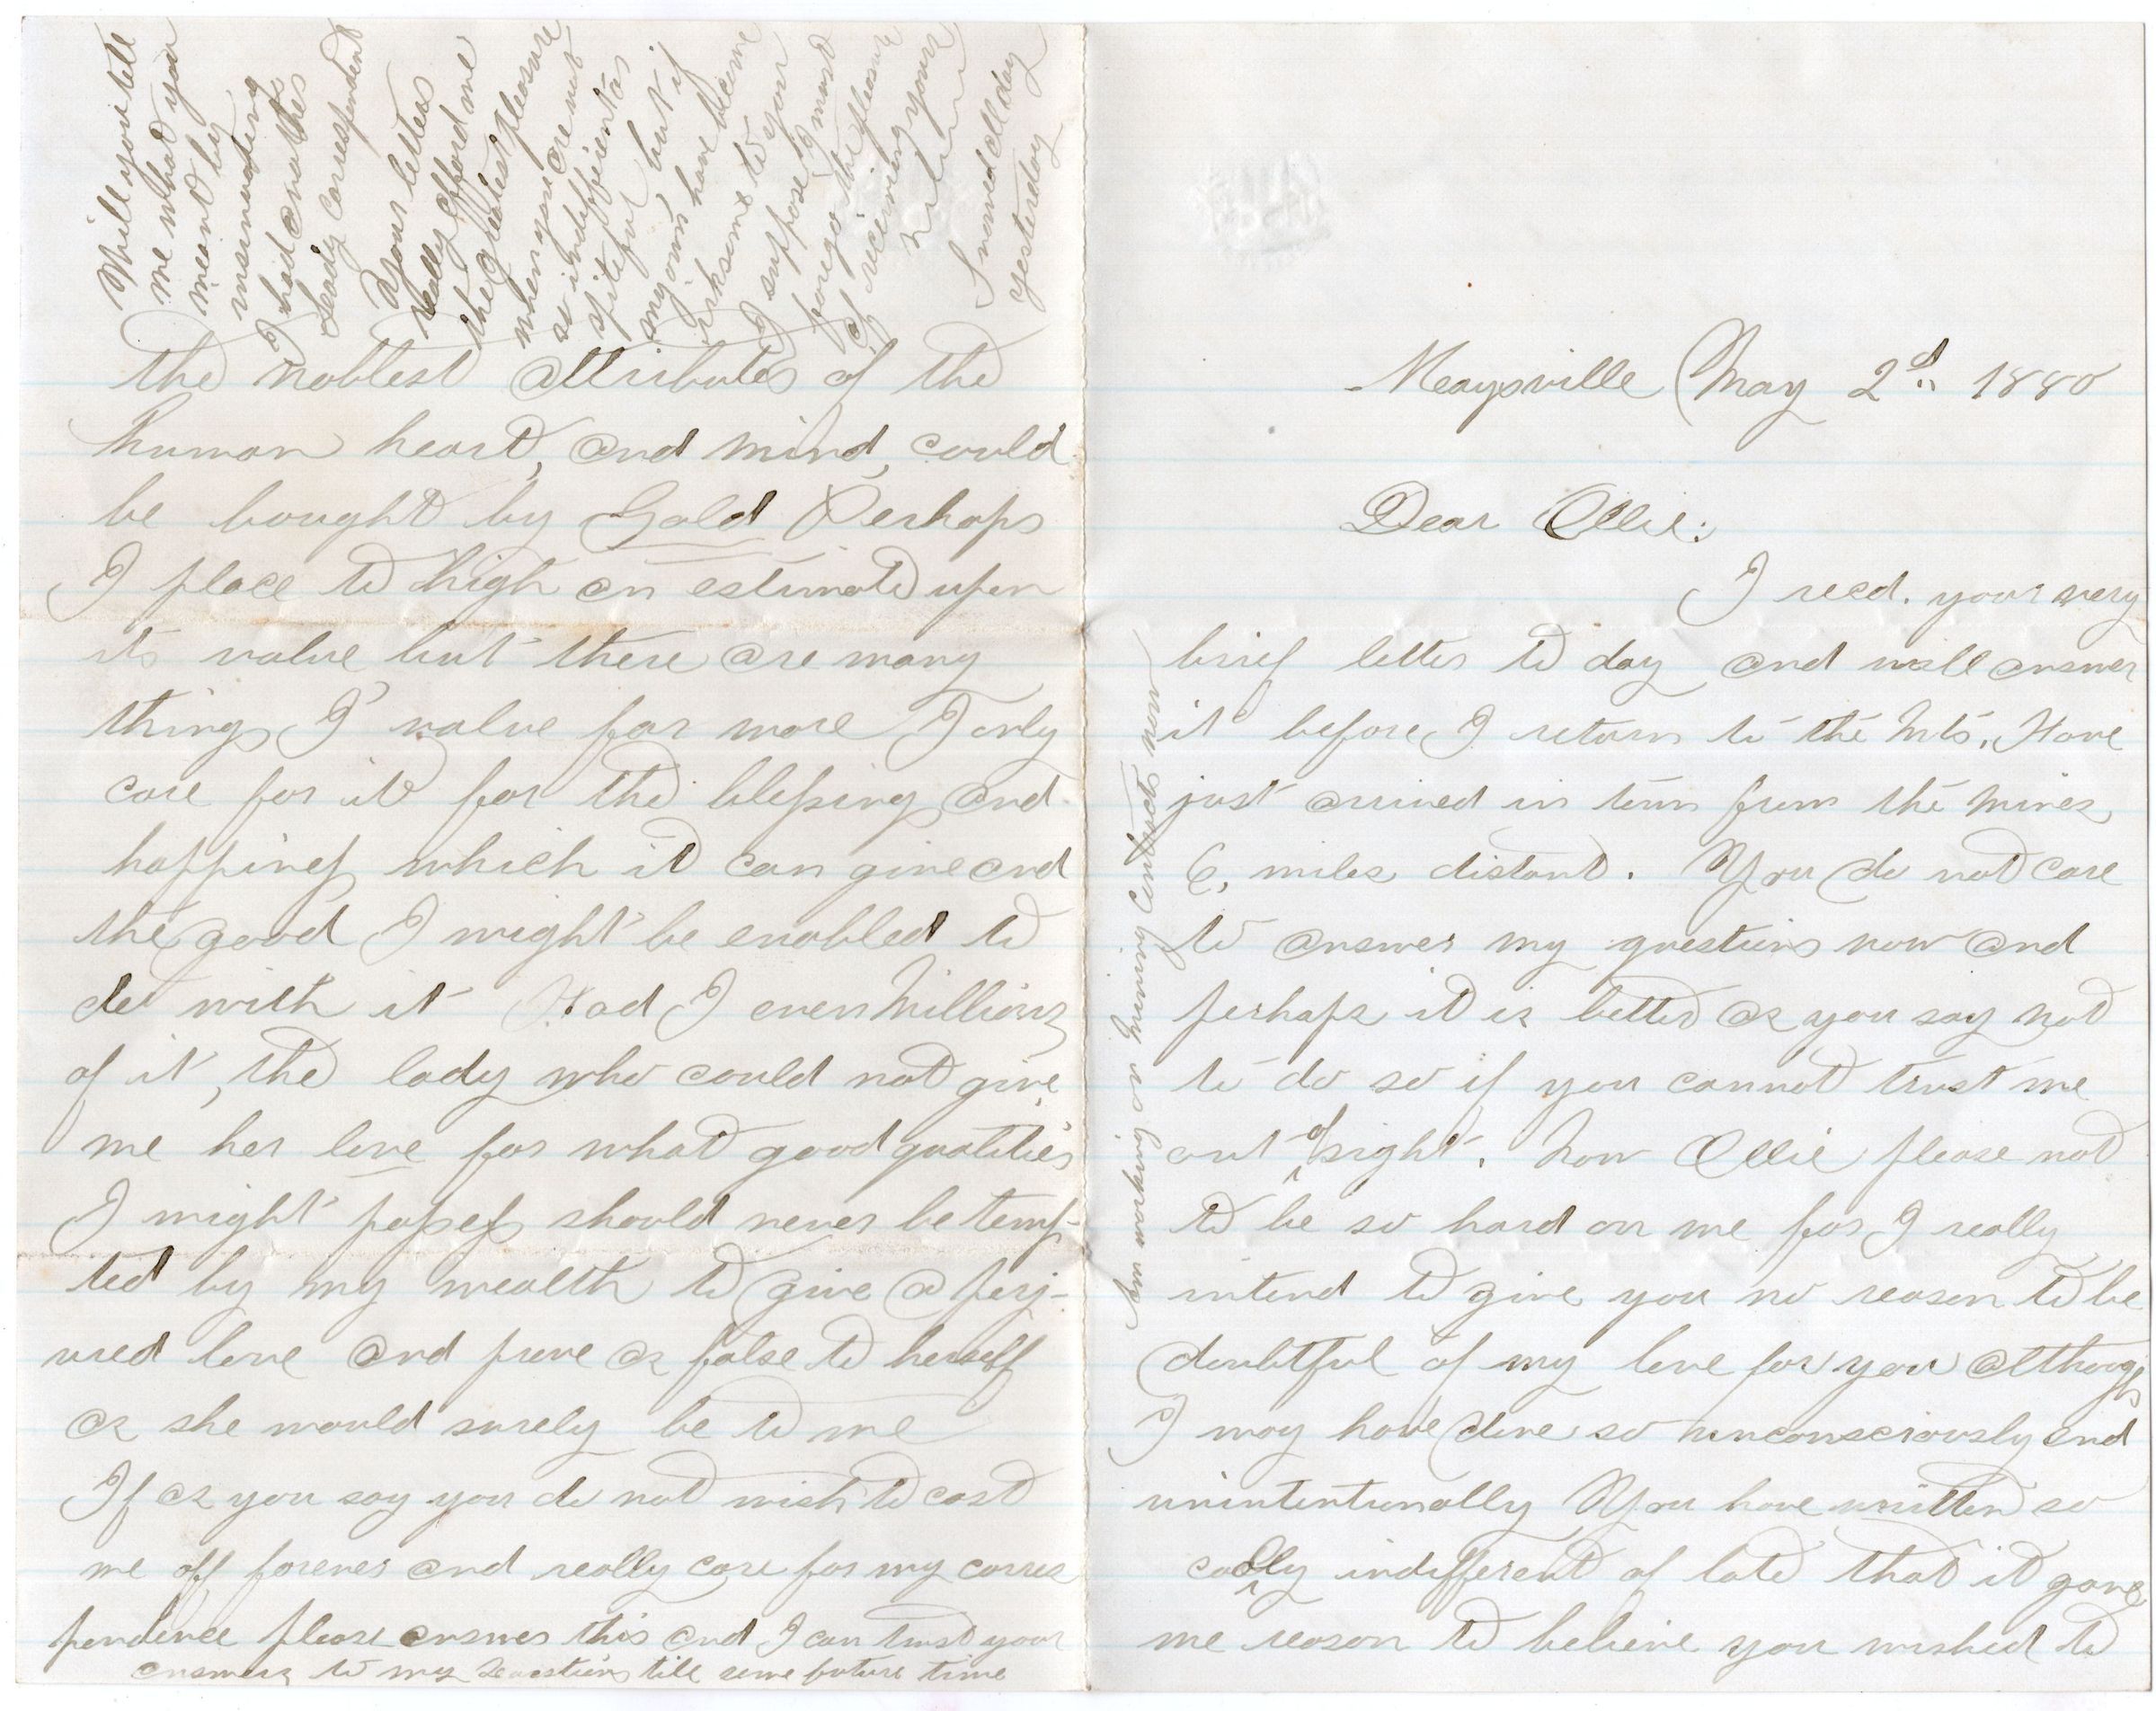 Marysville May 2d 1880
Dear Ollie:
I recd. your very
brief letter to day and will answer
it before I return to the Mts. Have
just arrived in town from the mines
6, miles distant. You do not care
to answer my questions now and
perhaps it is better as you say not
to do so if you cannot trust me
out of sight. Now Ollie please not
to be so hard on me for I really
intend to give you no reason to be
doubtful of my love for you although
I may have done so unconsciously and
unintentionally You have written so
coolly indifferent of late that it gave
me reason to believe you wished to
Am working on Mining Contracts now
the noblest attributes of the
human heart, and mind, could
be bought by Gold Perhaps
I place to high an estimate upon
its value, but there are many
things I value far more I only
care for it for the blessing and
happiness which it can give and
the good I might be enabled to
do with it Had I even Millions
of it, the lady who could not give
me her love for what good qualities
I might possess should never be temp-
ted by my wealth to give a perj-
ured love and prove as false to herself
as she would surely be to me
If as you say you do not wish to cast
me off forever and really care for my corres
pondence please answer this and I can trust your
answers to my questions till some future time
Will you tell
me what you
meant by
insinuating
I had another
Lady correspondent
Your letters
really afford me
the greatest pleasure
when you are not
so indifferent or
spiteful but if
my own have become
irksome to you
I suppose I must
forego the pleasure
of receiving yours
in return
Snowed all day
yesterday